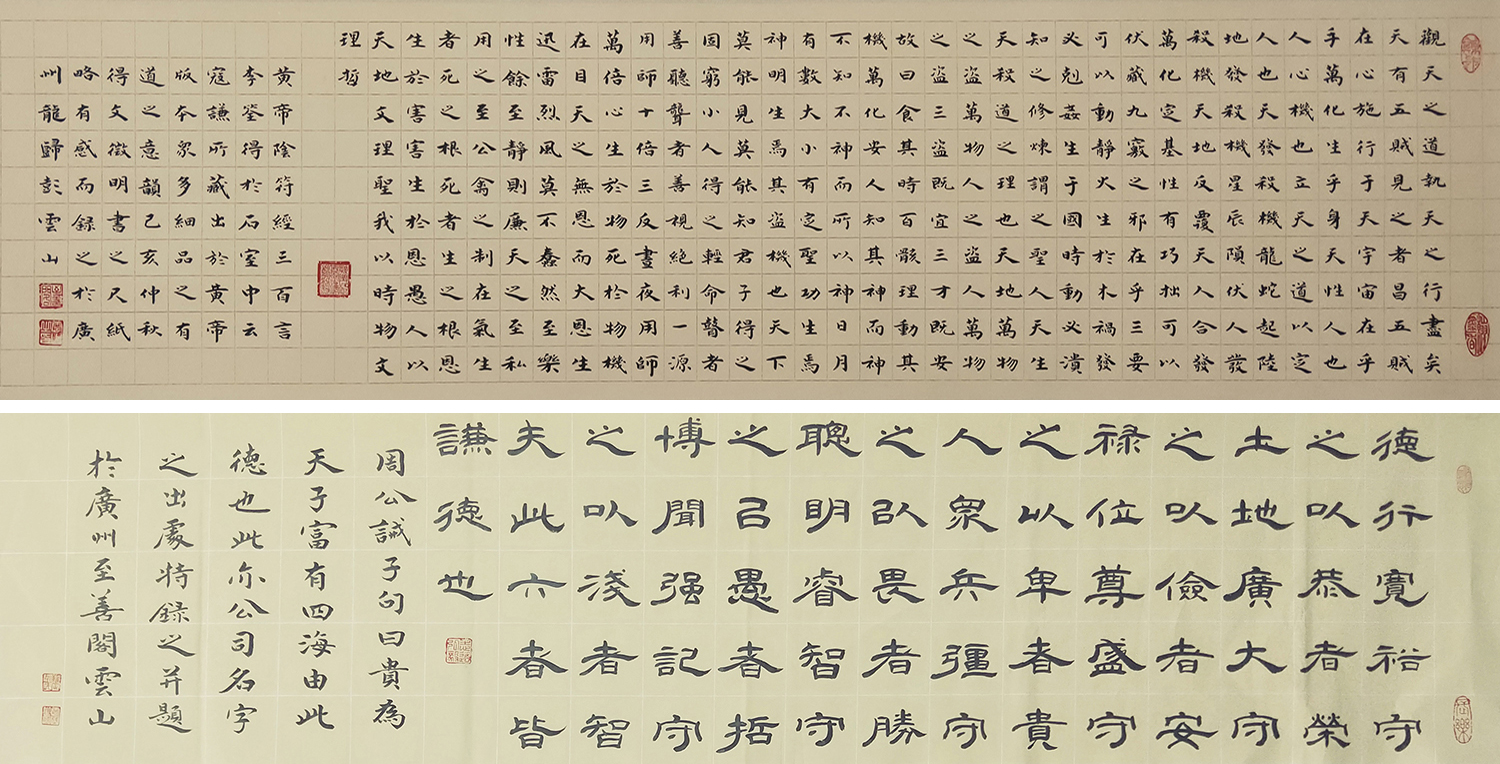 觀天之道執天之行盡矣
天有五賊見之者昌五賊
在心施行于天宇宙在乎
手萬化生乎身天性人也
人心機也立天之道以定
人也天發殺機龍蛇起陸
地發殺機星辰隕伏人發
殺機天地反覆天人合發
萬化定基性有巧拙可以
伏藏九竅之邪在乎三要
可以動靜火生於木禍發
必剋姦生于國時動必潰
知之修煉謂之聖人天生
天殺道之理也天地萬物
之盜萬物人之盜人萬物
之盜三盜既宜三才既安
故曰食其時百骸理動其
機萬化安人知其神而神
不知不神而所以神日月
有數大小有定聖功生焉
神明生焉其盜機也天下
莫能見莫能知君子得之
固窮小人得之輕命瞽者
善聽聾者善視絕利一源
用師十倍三反晝夜用師
萬倍心生於物死於物機
在目天之無恩而大恩生
迅雷烈風莫不蠢然至樂
性餘至靜則廉天之至私
用之至公禽之制在氣生
者死之根死者生之根恩
生於害害生於恩愚人以
天地文理聖我以時物文
理哲
黃帝陰符經三百言
李筌得於石室中云
寇謙所藏出於黃帝
版本眾多細品之有
道之意韻己亥仲秋
得文徵明書之尺紙
略有感而錄之於廣
州龍歸彭雲山
德行寬裕守
之以恭者榮
土地廣大守
之以儉者安
祿位尊盛守
之以卑者貴
人眾兵彊守
之以畏者勝
聰明睿智守
之㠯愚者哲
博聞强記守
之以淺者智
夫此六者皆
謙德也
周公誡子句曰貴為
天子富有四海由此
德也此亦公司名字
之出處特錄之并題
於廣州至善閣雲山